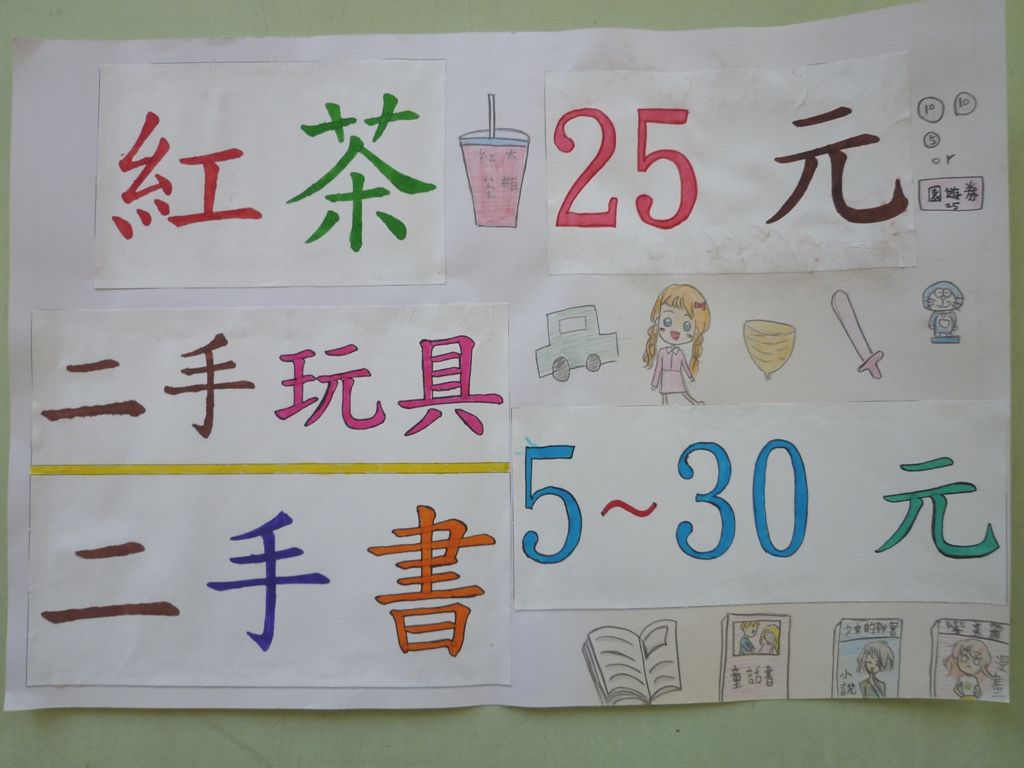 紅茶
大瓶
紅茶
25元
10 10
5
or
園遊券
25
二手玩具
二手書
5~30元
童話書
少女的秘密
小說
漫畫